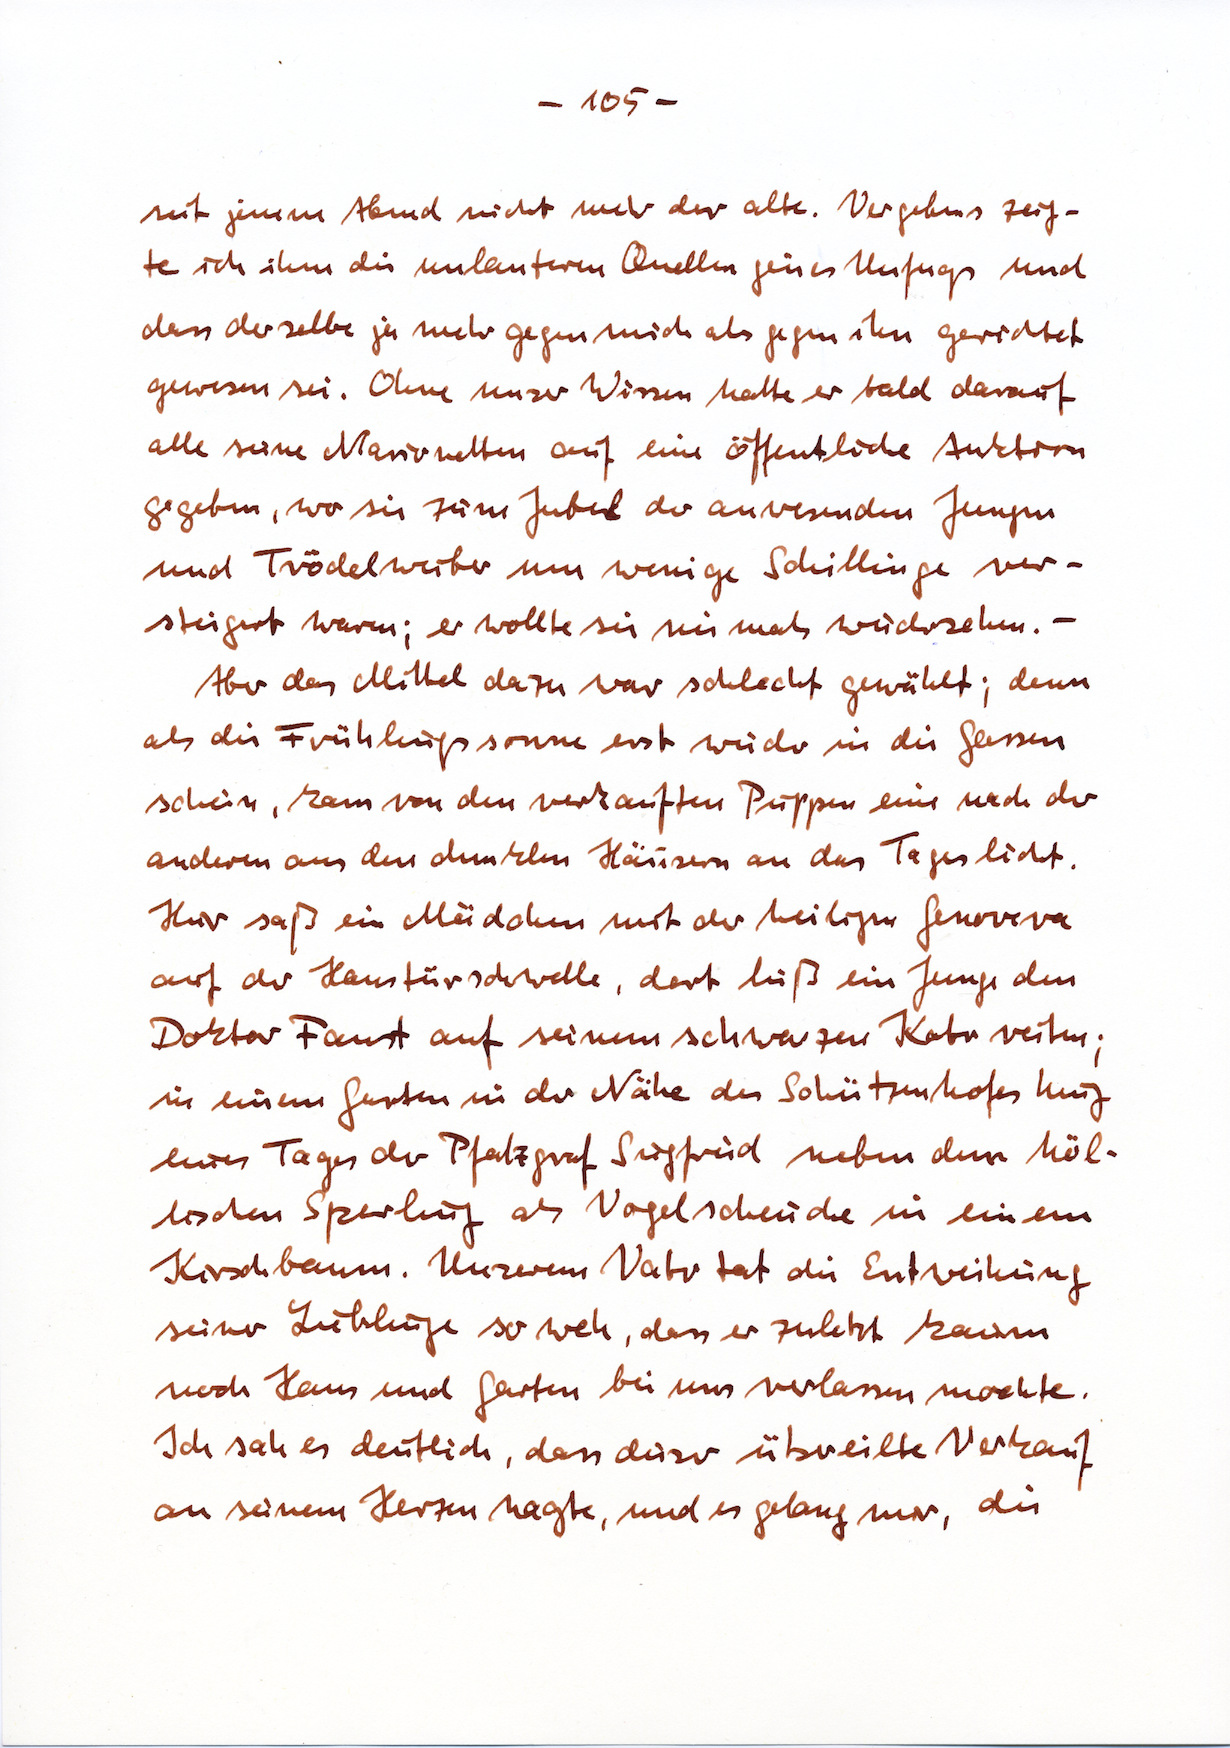 – 105 –
seit jenem Abend nicht mehr der alte. Vergebens zeig-
te ich ihm die unlauteren Quellen jenes Unfugs und
dass derselbe ja mehr gegen mich als gegen ihn gerichtet
gewesen sei. Ohne unser Wissen hatte er bald darauf
alle seine Marionetten auf eine öffentliche Auktion
gegeben, wo sie zum Jubel der anwesenden Jungen
und Trödelweiber um wenige Schillinge ver-
steigert waren; er wollte sie niemals wiedersehen. –
Aber das Mittel dazu war schlecht gewählt; denn
als die Frühlingssonne erst wieder in die Gassen
schien, kam von den verkauften Puppen eine nach der
anderen aus den dunklen Häusern an das Tageslicht.
Hier saß ein Mädchen mit der heiligen Genoveva
auf der Haustürschwelle, dort ließ ein Junge den
Doktor Faust auf seinem schwarzen Kater reiten;
in einem Garten in der Nähe des Schützenhofes hing
eines Tages der Pfalzgraf Siegfried neben dem höl-
lischen Sperling als Vogelscheuche in einem
Kirschbaum. Unserem Vater tat die Entweihung
seiner Lieblinge so weh, dass er zuletzt kaum
noch Haus und Garten bei uns verlassen mochte.
Ich sah es deutlich, dass dieser übereilte Verkauf
an seinem Herzen nagte, und es gelang mir, die